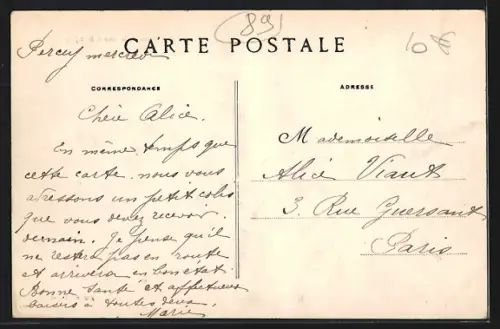 (89)
CARTE POSTALE
10€
Percey mercredi
CORRESPONDANCE
ADRESSE
Chère Alice.
En même temps que
cette carte. nous vous
adressons un petit colis
que vous devez recevoir
demain. Je pense qu'il
ne restera pas en route
et arrivera en bon état.
Bonne santé et affectueux
baisers à toutes deux.
Marie
Mademoiselle
Alice Viant
3. Rue Guersant
Paris